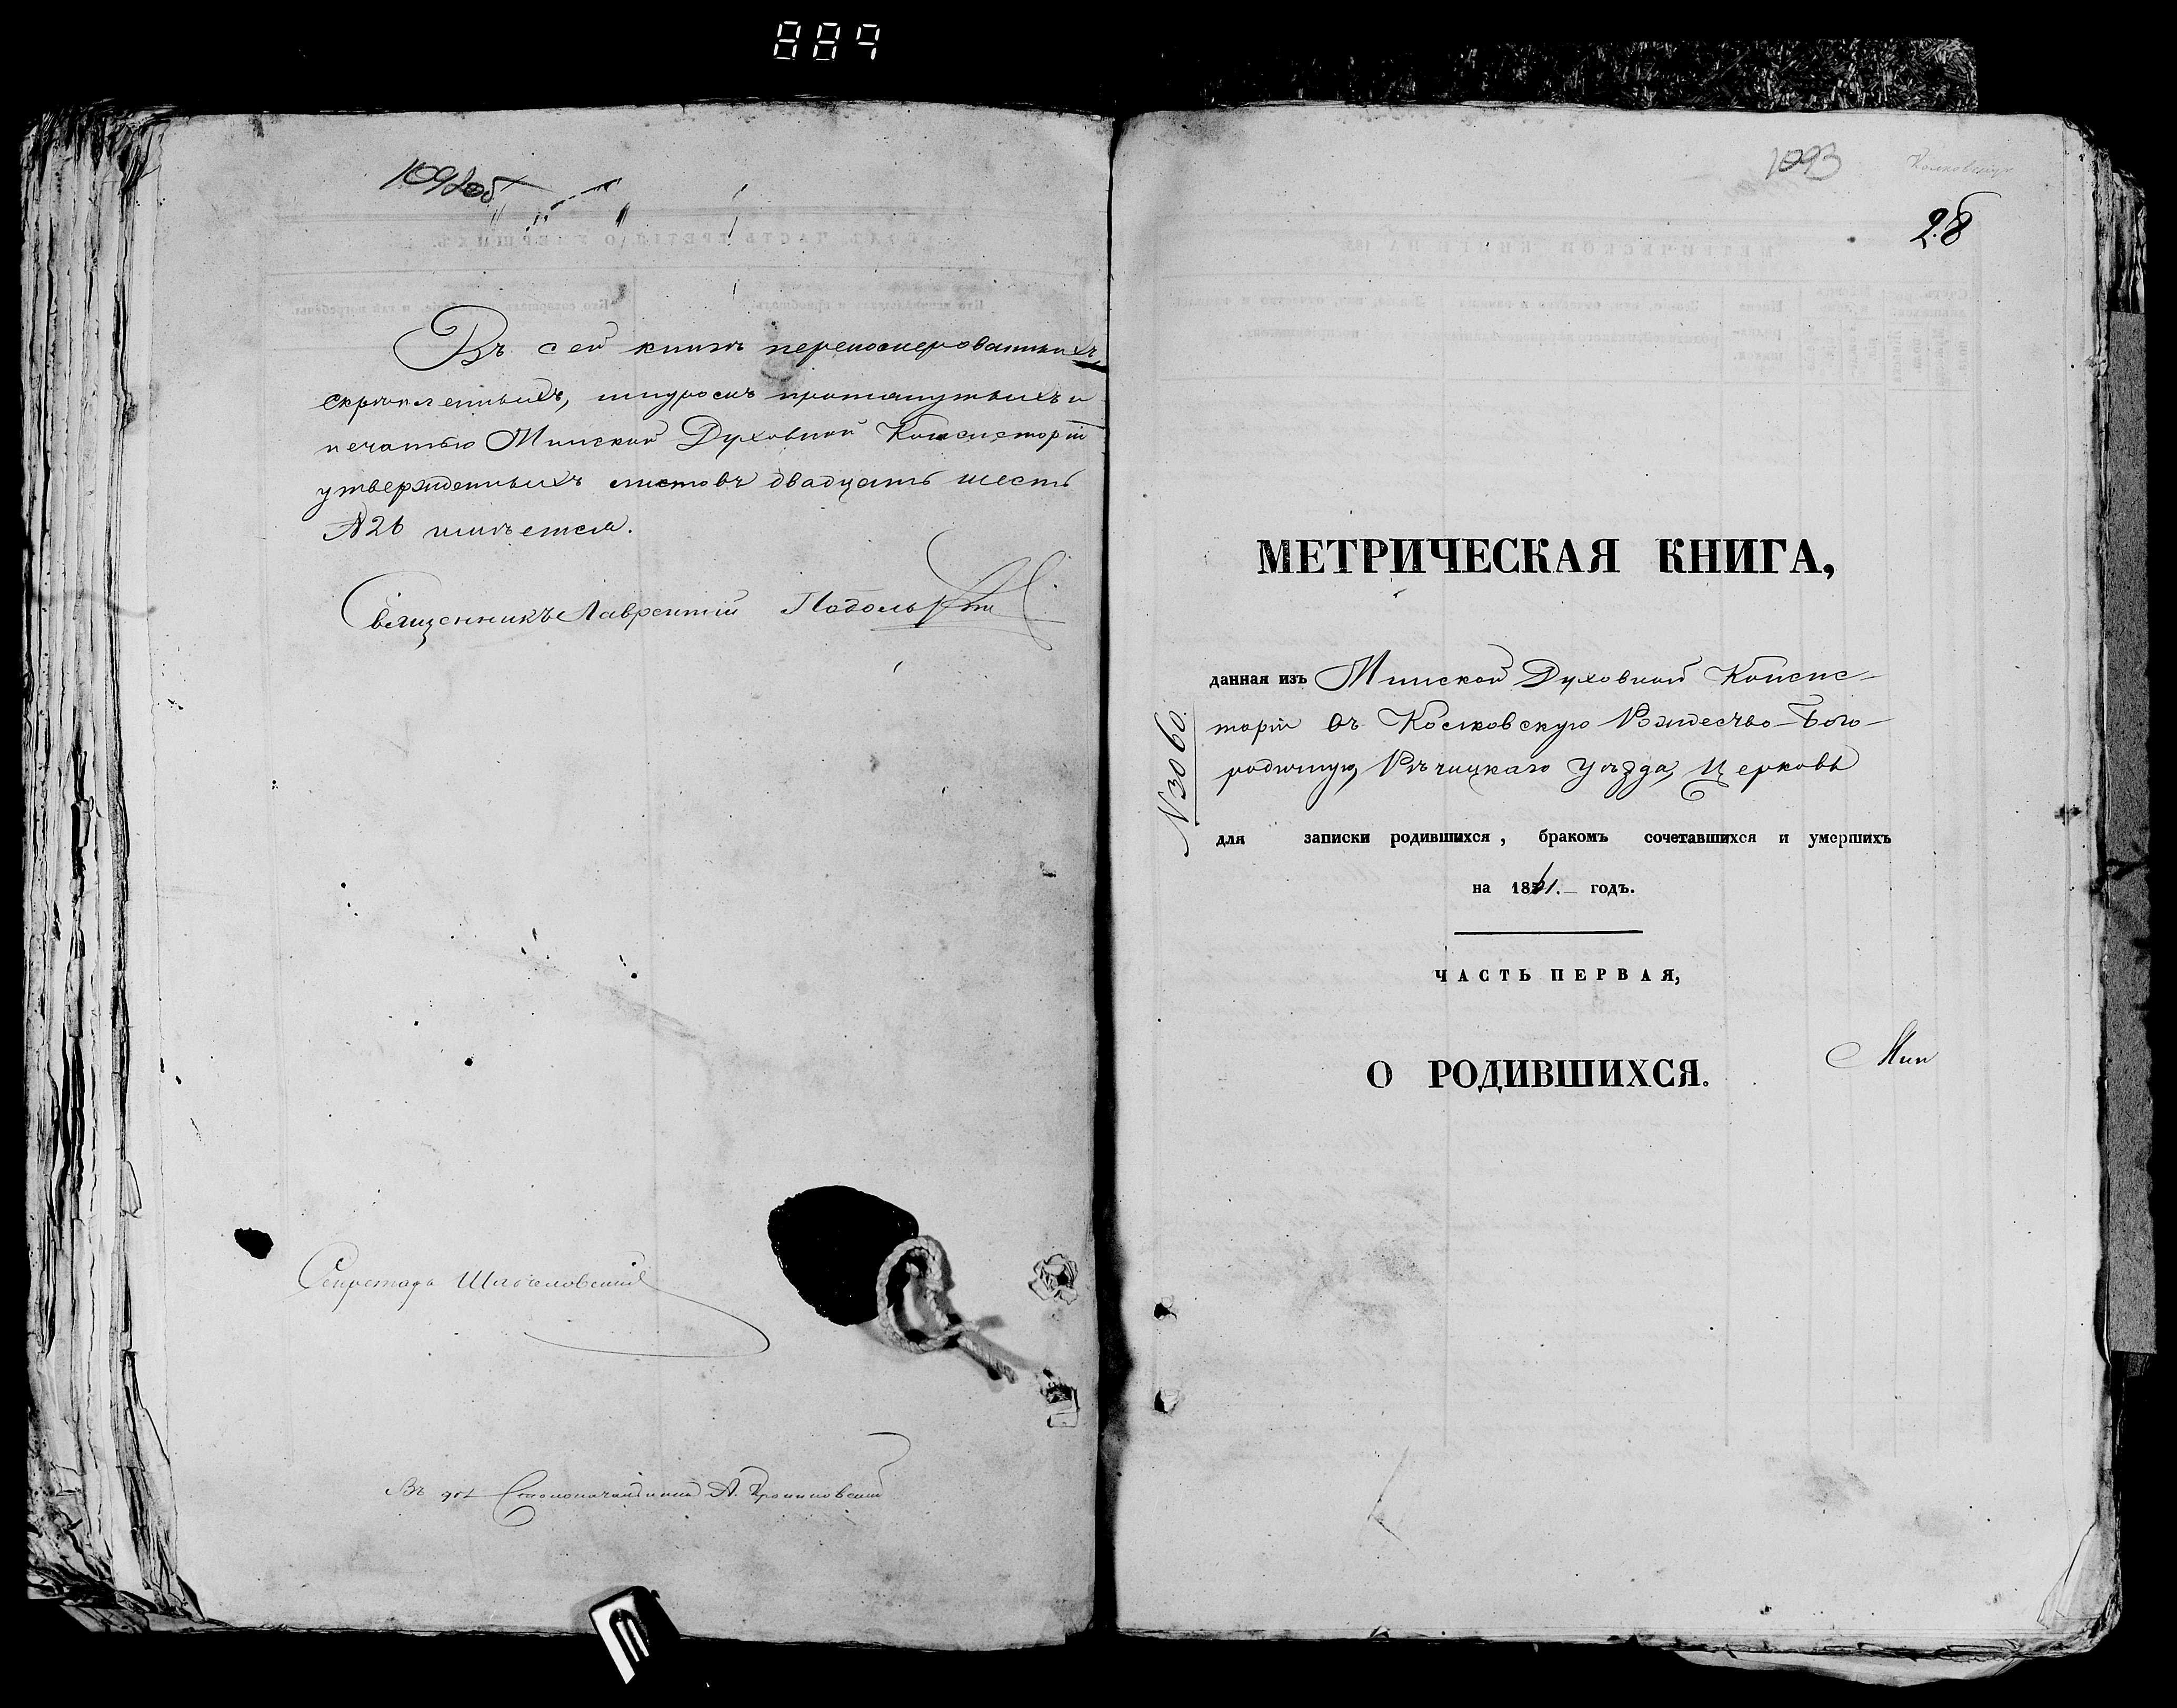 889
1092об
Въ сей книгѣ перенумерованныхъ,
скрѣпленныхъ, шнуромъ протянутыхъ и
печатью Минской Духовной Консисторіи
утвержденныхъ листовъ двадцать шесть
26 имѣется.
Священникъ Лаврентій
Секретарь
Въ дол. Столоначальника А.
1093
28
МЕТРИЧЕСКАЯ КНИГА,
данная изъ Минской Духовной Консис-
торіи въ Колковскую Рождество-Бого-
родичную, Рѣчицкаго Уѣзда, Церковь
№ 3060.
для записки родившихся, бракомъ сочетавшихся и умершихъ
на 1861. годъ.
ЧАСТЬ ПЕРВАЯ,
О РОДИВШИХСЯ.
Мин